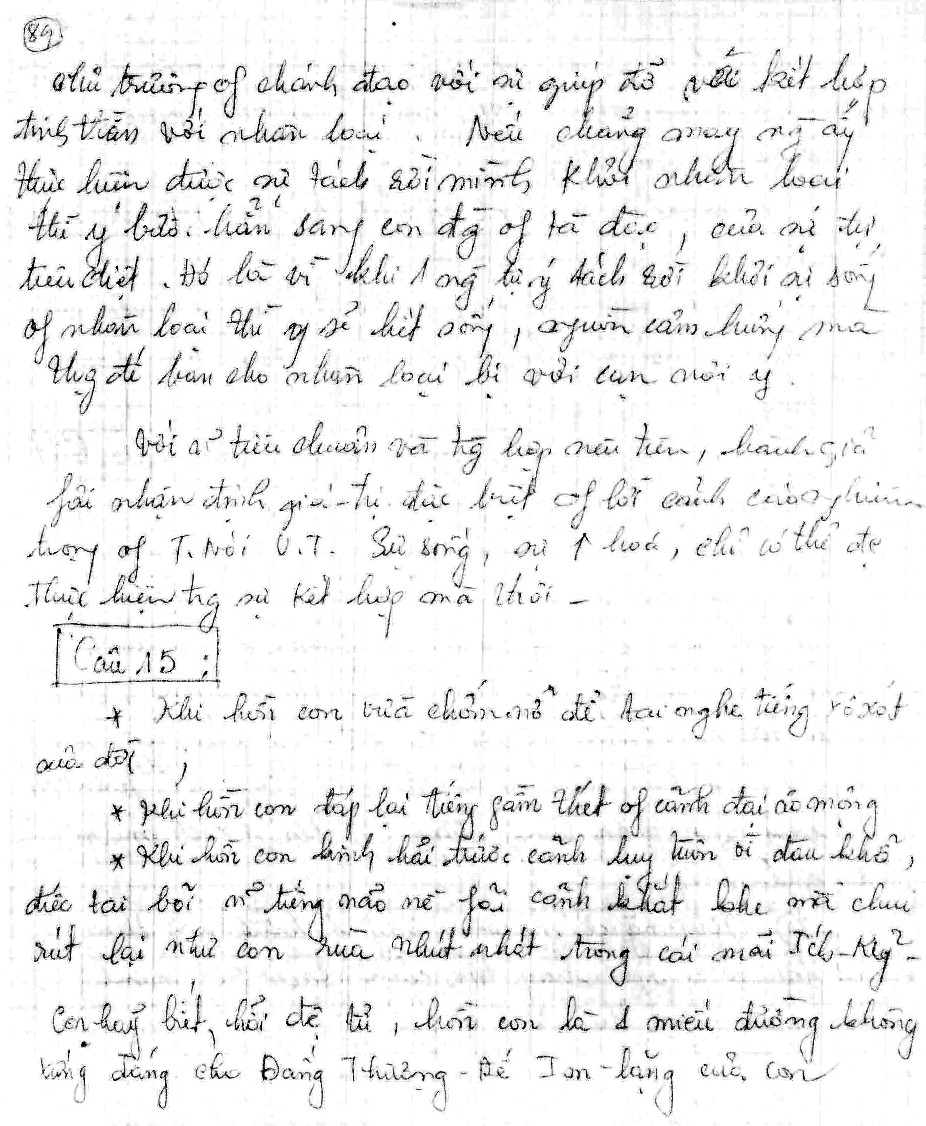 89
chủ trường of chánh đạo với sự giúp đỡ với kết hợp
tinh thần với nhân loại. Nếu chẳng may ng ấy
thực hiện được sự tách rời mình khỏi nhân loại
thì y bước hẳn sang con đg of tà đạo, của sự tự
tiêu diệt. Đó là vì khi 1 ng tự ý tách rời khỏi sự sống
of nhân loại thì y sẽ hết sống, nguồn cảm hứng mà
thg đế ban cho nhân loại bị với cạn nơi y.
Với ~ tiêu chuẩn và trg hợp nêu trên, hành giả
fải nhận định giá-trị đặc biệt of lời cảnh cáo nghiêm
trọng of T. Nói V.T. Sự sống, sự ↑ hoá, chỉ có thể đc
thực hiện trg sự kết hợp mà thôi -
Câu 15 :
* Khi hồn con vừa chớm nở để tai nghe tiếng xô xát
của đời ;
* Khi hồn con đáp lại tiếng gầm thét of cảnh đại ảo mộng
* Khi hồn con kinh hải trước cảnh lụy tuôn vì đau khổ,
điếc tai bởi ~ tiếng não nề fải cảnh khắt khe mà chui
rút lại như con rùa nhút nhát trong cái mai Ích-Kỷ -
Con hãy biết, hỡi đệ tử, hồn con là 1 miếu đường không
xứng đáng cho Đấng Thượng-Đế Im-lặng của con